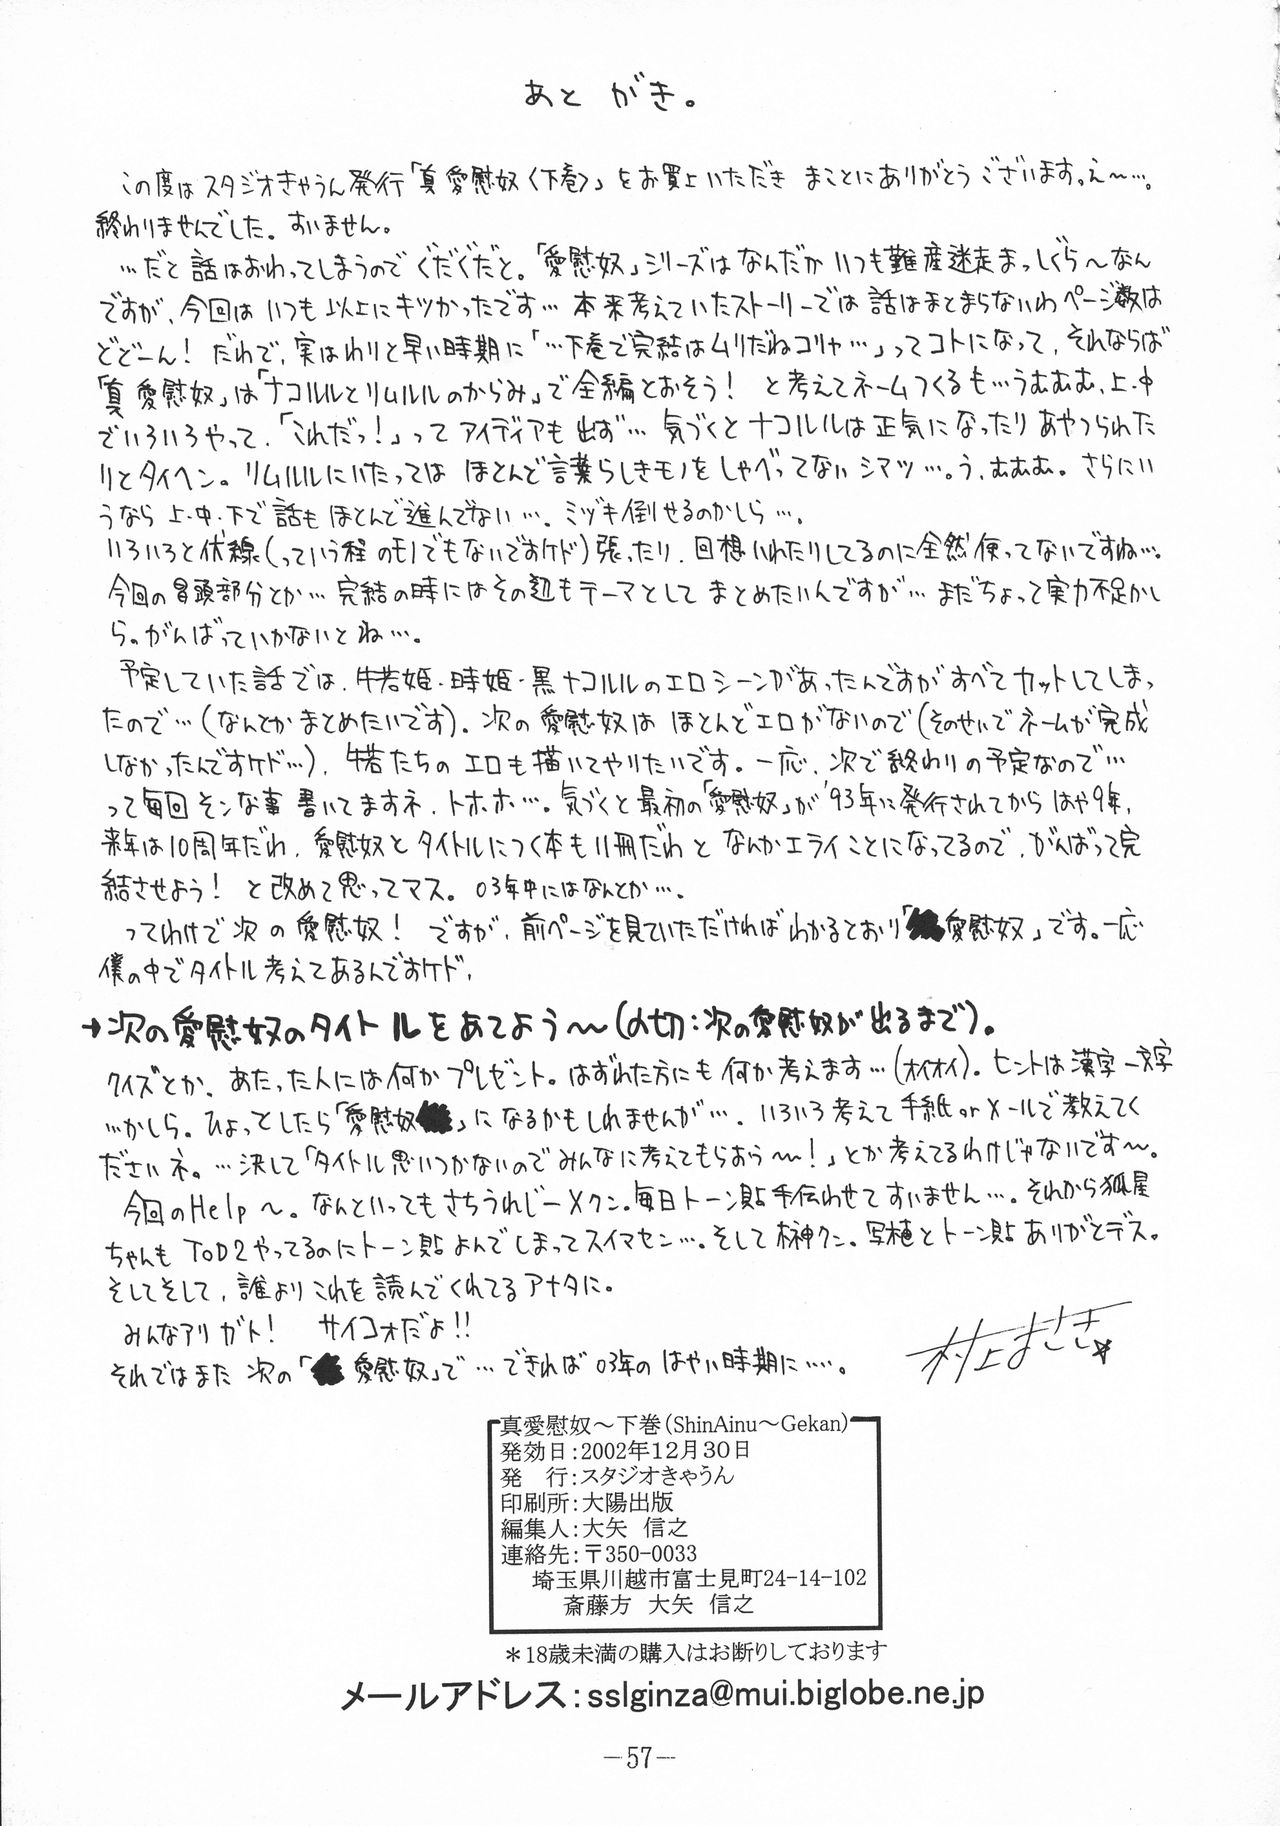 あとがき。
この度はスタジオきゃうん発行「真愛慰奴〈下巻〉」をお買上いただき まことにありがとうございます。え〜…。
終わりませんでした。すいません。
…だと話はおわってしまうのでぐだぐだと。「愛慰奴」シリーズはなんだかいつも難産迷走まっしぐら〜なん
ですが、今回はいつも以上にキツかったです…本来考えていたストーリーでは話はまとまらないわページ数は
どどーん! だわで、実はわりと早い時期に「…下巻で完結はムリだねコリャ…」ってコトになって、それならば
「真愛慰奴」は「ナコルルとリムルルのからみ」で全編とおそう! と考えてネームつくるも…うむむむ、上・中
でいろいろやって、「これだっ!」ってアイディアも出ず…気づくとナコルルは正気になったりあやつられた
りとタイヘン。リムルルにいたってはほとんど言葉らしきモノをしゃべってないシマツ…。う、むむむ。さらにい
うなら上・中・下で話もほとんど進んでない…。ミヅキ倒せるのかしら…。
いろいろと伏線(っていう程のモノでもないですケド)張ったり、回想いれたりしてるのに全然使ってないですね…。
今回の冒頭部分とか…完結の時にはその辺もテーマとしてまとめたいんですが…まだちょって実力不足かし
ら。がんばっていかないとね…。
予定していた話では、牛若姫・時姫・黒ナコルルのエロシーンがあったんですがすべてカットしてしまっ
たので…(なんとかまとめたいです)。次の愛慰奴はほとんどエロがないので(そのせいでネームが完成
しなかったんですケド…)、牛若たちのエロも描いてやりたいです。一応、次で終わりの予定なので…
って毎回そンな事書いてますネ、トホホ…。気づくと最初の「愛慰奴」が'93年に発行されてからはや9年,
来年は10周年だわ、愛慰奴とタイトルにつく本も11冊だわとなんかエライことになってるので、がんばって完
結させよう! と改めて思ってマス。03年中にはなんとか….
ってわけで次の愛慰奴! ですが、前ページを見ていただければわかるとおり「愛慰奴」です。一応
僕の中でタイトル考えてあるんですケド,
→次の愛慰奴のタイトルをあてよう〜(〆切:次の愛慰奴が出るまで)。
クイズとか、あたった人には何かプレゼント。はずれた方にも何か考えます…(オイオイ)。ヒントは漢字一文字
…かしら。ひょっとしたら「愛慰奴」になるかもしれませんが…. いろいろ考えて手紙orメールで教えてく
ださいネ。…決して「タイトル思いつかないのでみんなに考えてもらおう〜!」とか考えてるわけじゃないです〜。
今回のHelp〜。なんといってもさちうれじーメクン。毎日トーン貼手伝わせてすいません…。それから狐星
ちゃんもToD2やってるのにトーン貼よんでしまってスイマセン…。そして榊クン。写植とトーン貼ありがとデス。
そしてそして、誰よりこれを読んでくれてるアナタに。
みんなアリガト! サイコォだよ!!
それではまた次の「愛慰奴」で…できれば03年のはやい時期に….。
村上まさき☆
真愛慰奴〜下巻(ShinAinu〜Gekan)
発効日:2002年12月30日
発　行:スタジオきゃうん
印刷所:大陽出版
編集人:大矢 信之
連絡先:〒350-0033
埼玉県川越市富士見町24-14-102
斎藤方 大矢 信之
＊18歳未満の購入はお断りしております
メールアドレス:sslginza@mui.biglobe.ne.jp
―57―